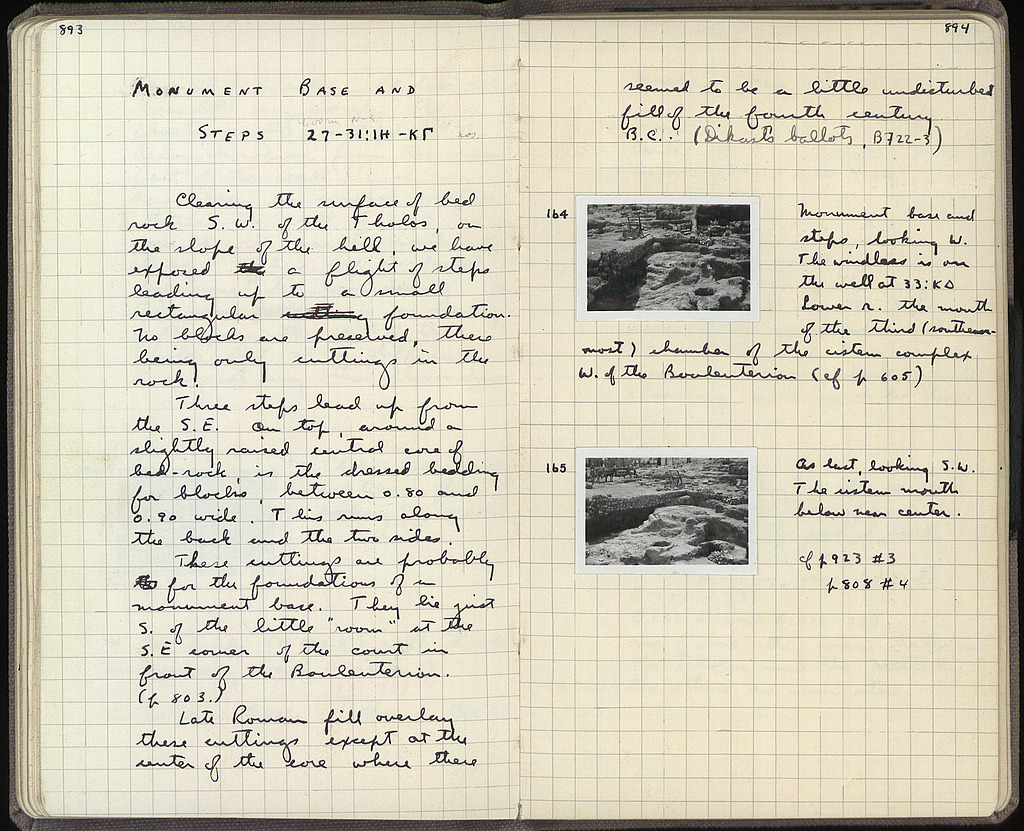 893
MONUMENT BASE AND
STEPS 27-31:ΙΗ-ΚΓ
Clearing the surface of bed
rock S.W. of the Tholos, on
the slope of the hill, we have
exposed a flight of steps
leading up to a small
rectangular foundation.
No blocks are preserved, there
being only cuttings in the
rock.
Three steps lead up from
the S.E. On top, around a
slightly raised central core of
bed-rock, is the dressed bedding
for blocks, between 0.80 and
0.90 wide. This runs along
the back and the two sides.
These cuttings are probably
for the foundations of a
monument base. They lie just
S. of the little "room" at the
S.E corner of the court in
front of the Bouleuterion.
(p 803.)
Late Roman fill overlay
these cuttings except at the
center of the core where there
894
seemed to be a little undisturbed
fill of the fourth century
B.C.. (Dikasts ballots, B722-3)
164
Monument base and
steps, looking W.
The windlass is on
the well at 33:ΚΔ
Lower r. the mouth
of the third (southern-
most) chamber of the cistern complex
W. of the Bouleuterion (cf p 605)
165
As last, looking S.W.
The cistern mouth
below near center.
cf p 923 #3
p 808 #4